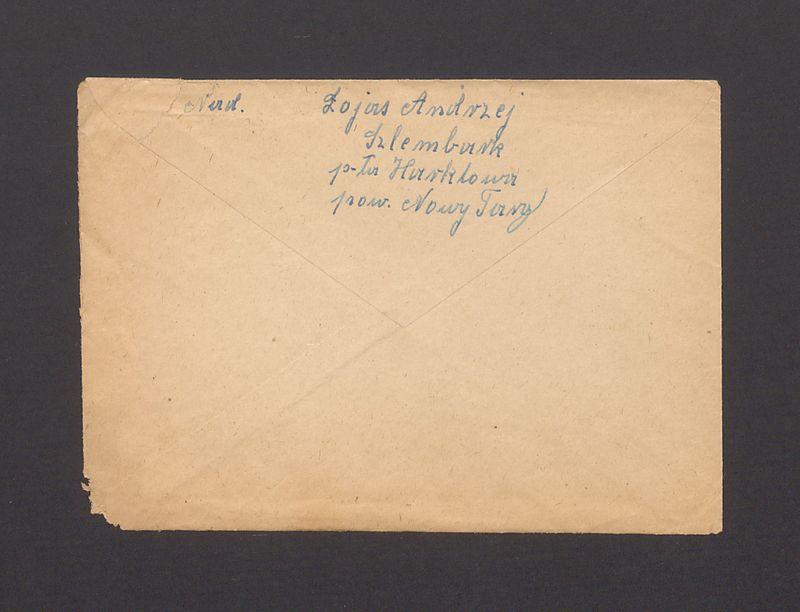 Nad. Zojas Andrzej
Szlembark
p-ta Harklowa
pow. Nowy Targ